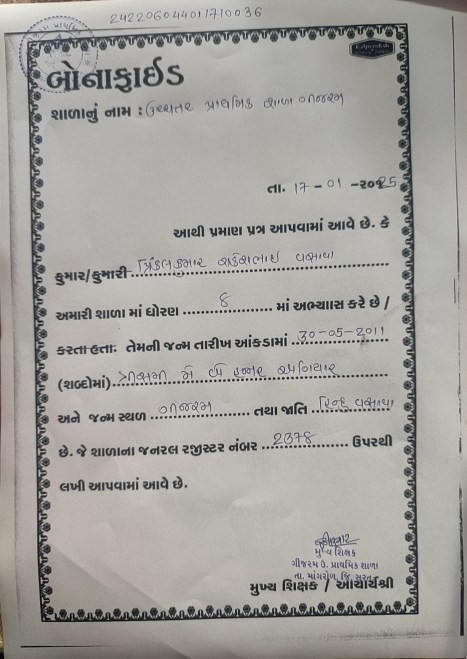 24220604401710036
બોનાફાઈડ
શાળાનું નામ : ઉચ્ચતર પ્રાથમિક શાળા ગીજરમ
તા. 17 - 01 - ૨૦૨5
આથી પ્રમાણ પત્ર આપવામાં આવે છે. કે
કુમાર/કુમારી વસાવા
અમારી શાળા માં ધોરણ 8 માં અભ્યાસ કરે છે /
કરતા હતા: તેમની જન્મ તારીખ આંકડામાં 30-05-2011
(શબ્દોમાં) ત્રીસમી મે બે હજાર અગિયાર
અને જન્મ સ્થળ ગીજરમ તથા જાતિ હિન્દુ વસાવા
છે. જે શાળાના જનરલ રજીસ્ટર નંબર 2378 ઉપરથી
લખી આપવામાં આવે છે.
મુખ્ય શિક્ષક
ગીજરમ ઉ. પ્રાથમિક શાળા
તા. માંગરોળ, જિ. સુરત
મુખ્ય શિક્ષક / આચાર્યશ્રી